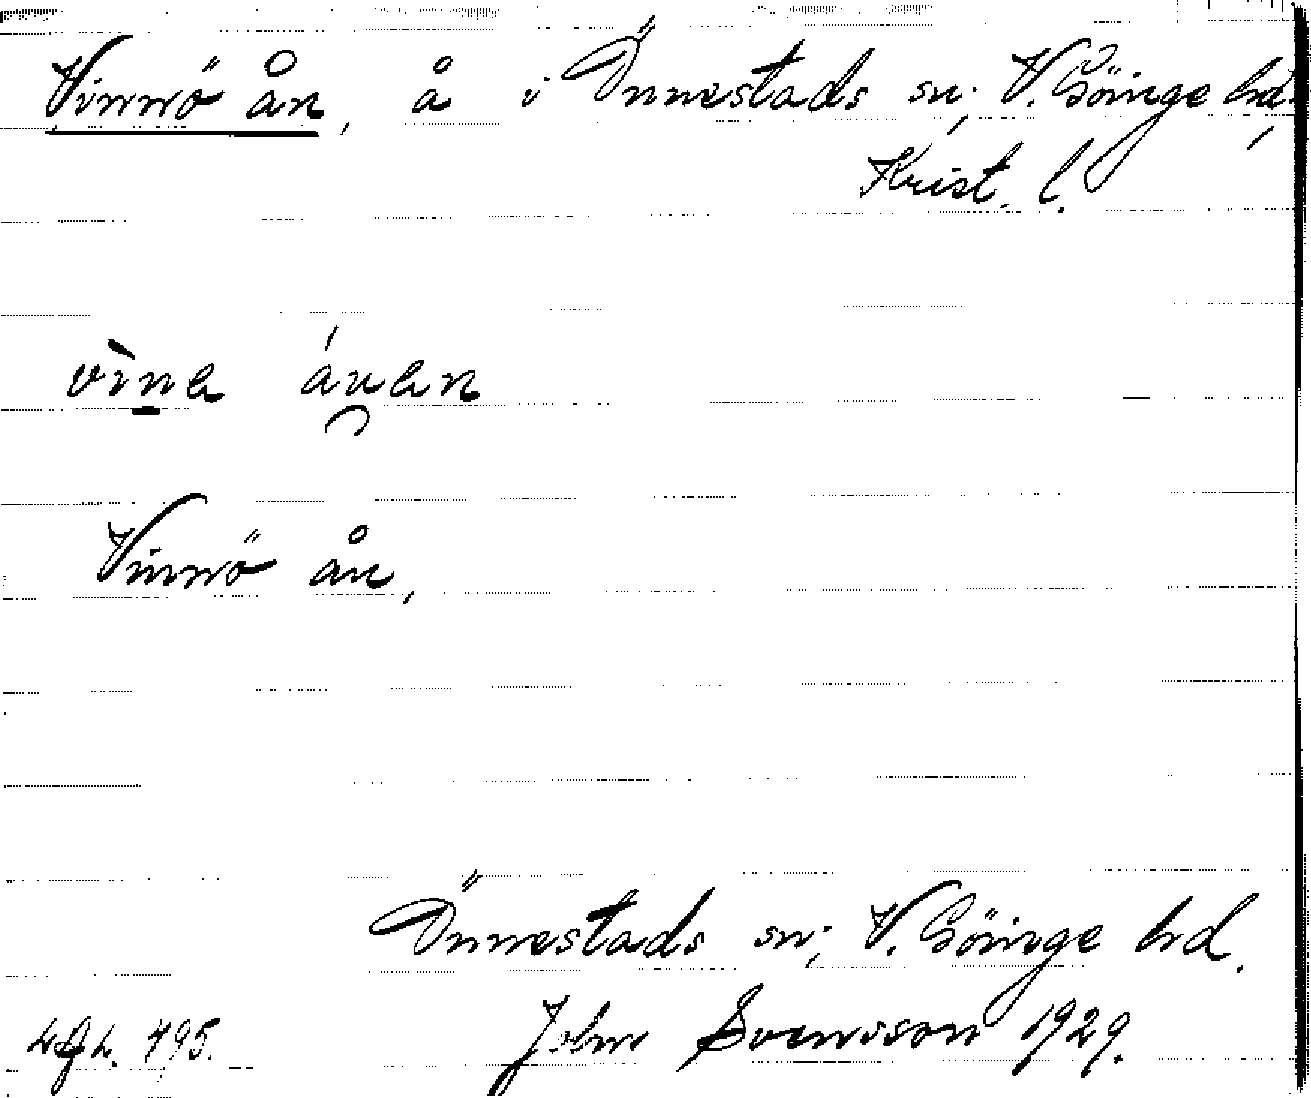 Vinnö ån, å i Önnestads sn; V. Göinge hd,
Krist. l.
Vinnö ån,
Önnestads sn; V. Göinge hd.
John Svensson 1929.